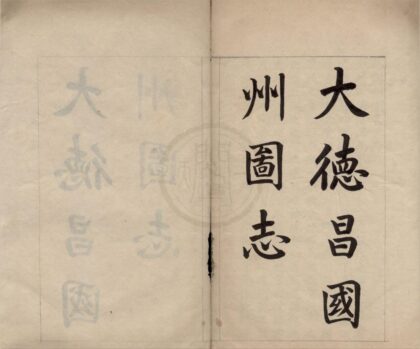 大德昌國
州圖志